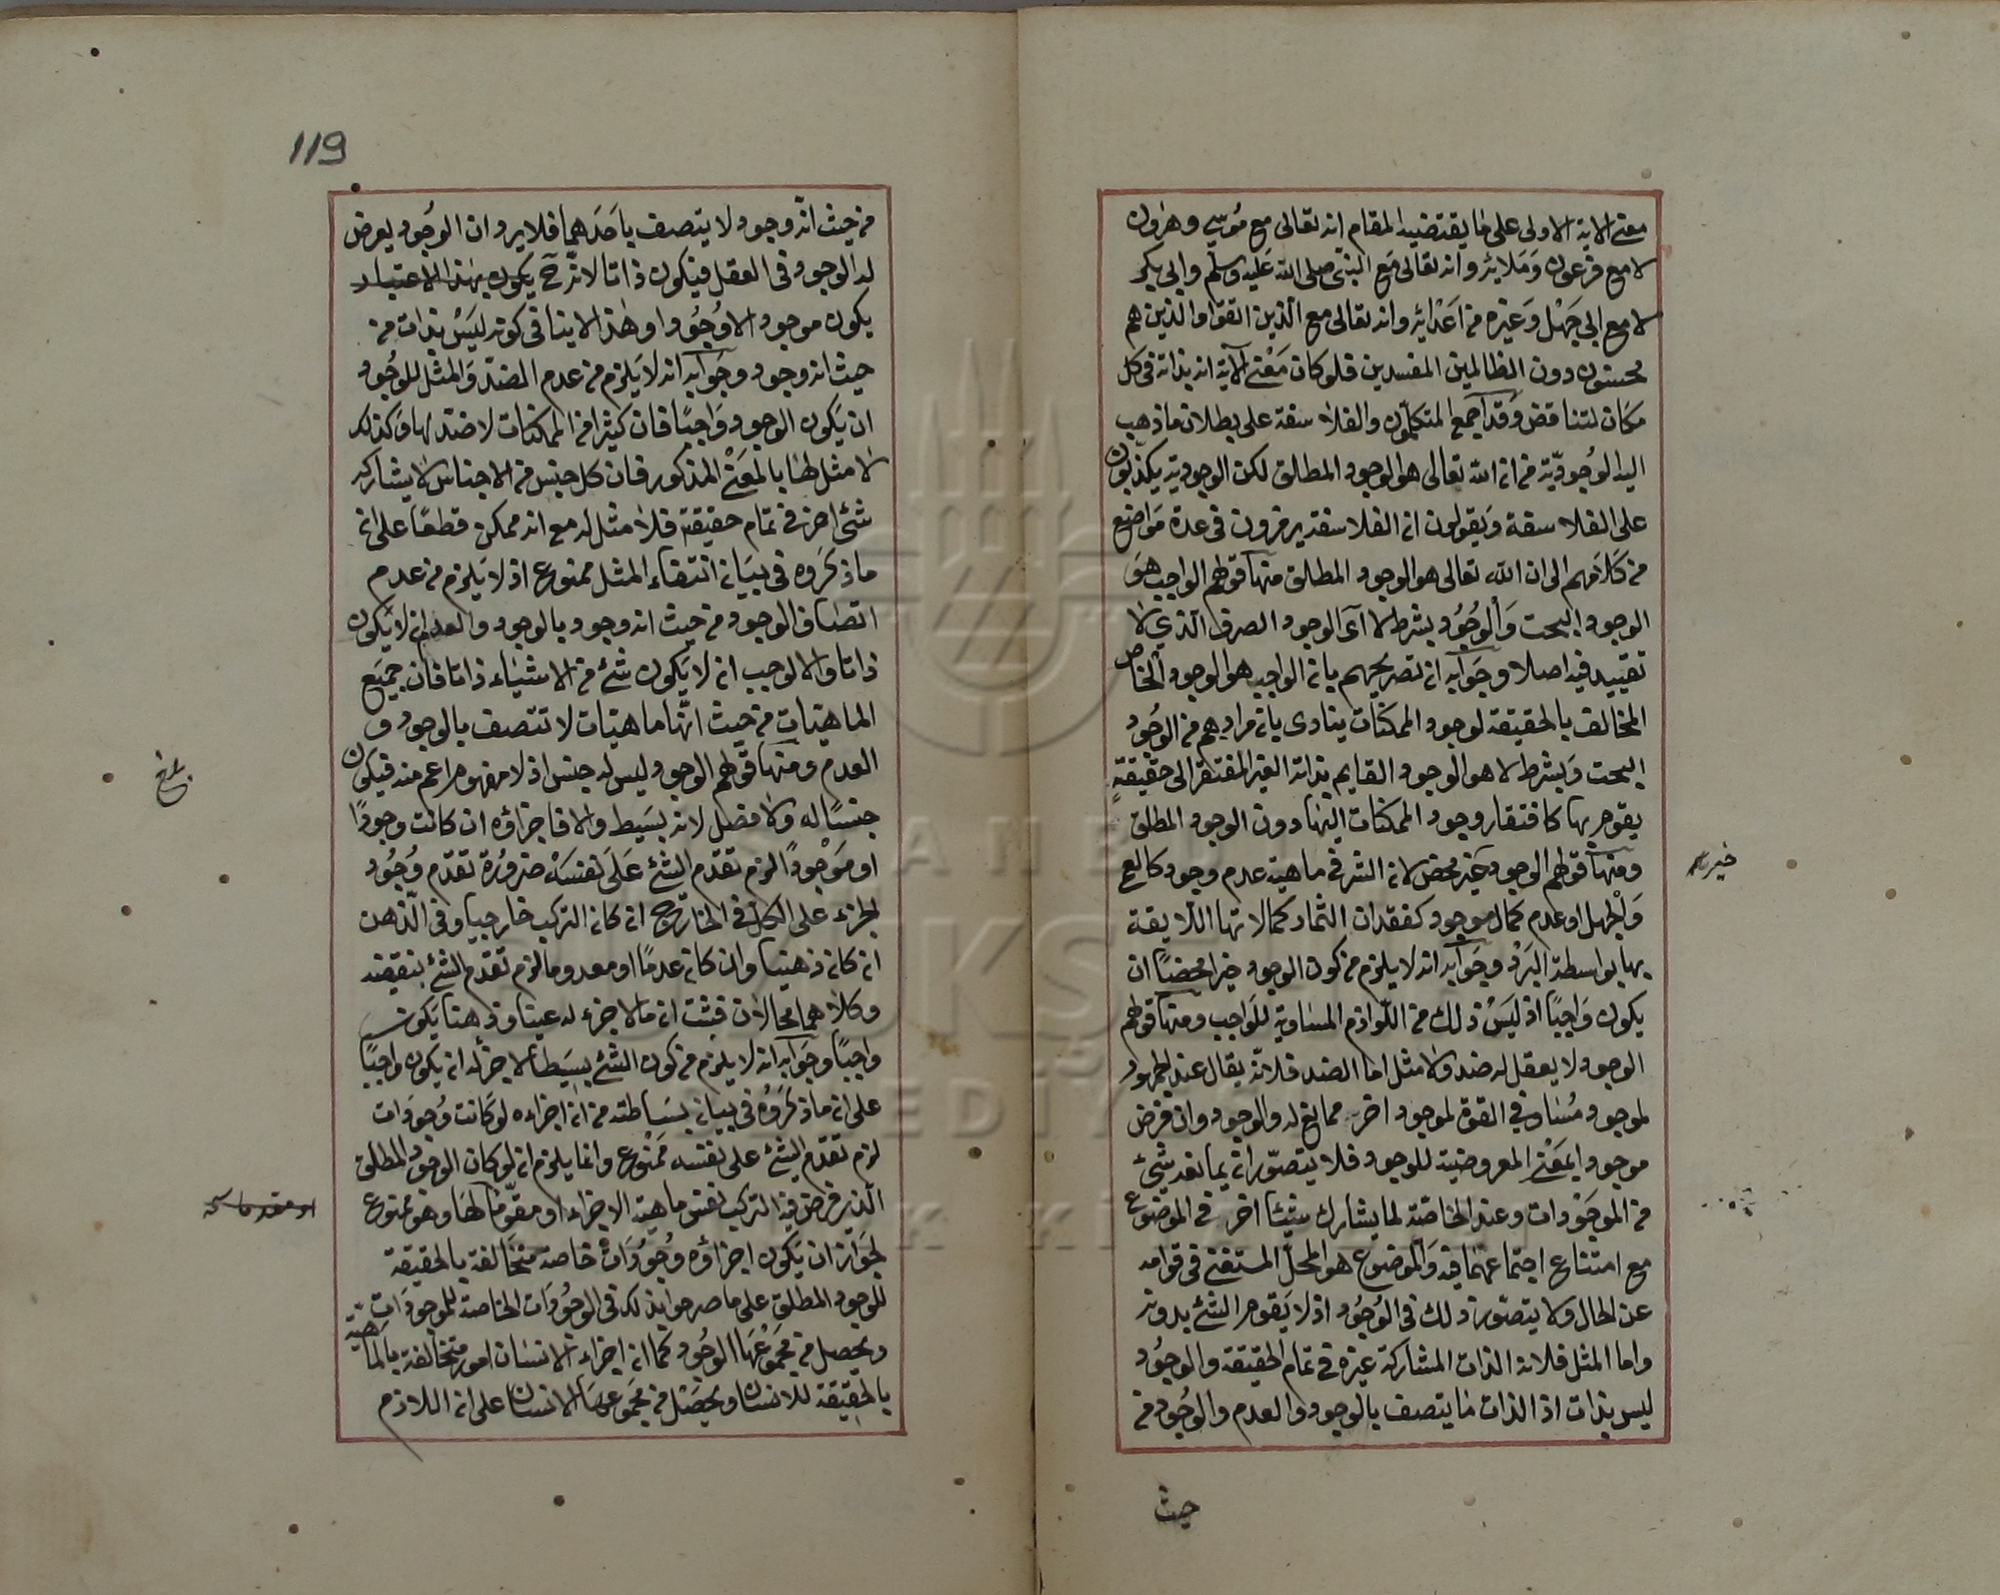 معنى الاية الاولى على ما يقتضيه المقام انه تعالى مع موسى وهرون
لا مع فرعون وملائه وانه تعالى مع النبي صلى الله عليه وسلم وابي بكر
لا مع ابي جهل وغيره من اعدائه وانه تعالى مع الذين اتقوا والذين هم
محسنون دون الظالمين المفسدين فلو كان معنى الآية انه بذاته في كل
مكان لتناقض وقد اجمع المتكلمون والفلاسفة على بطلان ما ذهب
اليه الوجودية من ان الله تعالى هو الوجود المطلق لكن الوجودية يكذبون
على الفلاسفة ويقولون ان الفلاسفة يرمزون في عدة مواضع
من كلامهم الى ان الله تعالى هو الوجود المطلق منها قولهم الواجب هو
الوجود البحت والوجود بشرط لا آى الوجود الصرف الذي لا
تقييد فيه اصلا وجوابه ان تصريحهم بان الواجب هو الوجود الخاص
المخالف بالحقيقة لوجود الممكنات ينادى بان مرادهم من الوجود
البحت وبشرط لا هو الوجود القايم بذاته الغير المفتقر الى حقيقة
يقوم بها كافتقار وجود الممكنات اليها دون الوجود المطلق
ومنها قولهم الوجود خير محض لان الشر في ماهية عدم وجود كالعمى
والجهل او عدم كمال موجود كفقدان الثمار كمالاتها اللايقة
بها بواسطة البرد وجوابه انه لا يلزم من كون الوجود خيرا محضا ان
يكون واجبا اذ ليس ذلك من اللوازم المساوية للواجب ومنها قولهم
الوجود لا يعقل له ضد ولا مثل اما الضد فلانه يقال عند الجمهور
لموجود مساو في القوة لموجود اخر ممانع له والوجود وان فرض
موجودا بمعنى المعروضية للوجود فلا يتصور ان يمانعه شيئ
من الموجودات وعند الخاصة لما يشارك شيئا اخر في الموضوع
مع امتناع اجتماعهما فيه والموضوع هو المحل المستغنى في قوامه
عن الحال ولا يتصور ذلك في الوجود اذ لا يقوم الشئ بدونه
واما المثل فلانه الذات المشاركة غيره في تمام الحقيقة والوجود
ليس بذات اذ الذات ما يتصف بالوجود والعدم والوجود من
حيث
119
من حيث انه وجود لا يتصف باحدهما فلا يرد ان الوجود يعرض
له الوجود في العقل فيكون ذاتا لانه ح يكون بهذا الاعتبار
يكون موجودا لا وجودا وهذا لا ينافي كونه ليس بذات من
حيث انه وجود وجوابه انه لا يلزم من عدم الضد والمثل للوجود
ان يكون الوجود واجبا فان كثيرا من الممكنات لا ضد لها وكذلك
لا مثل لها بالمعنى المذكور فان كل جنس من الاجناس لا يشاركه
شئ اخر في تمام حقيقته فلا مثل له مع انه ممكن قطعا على ان
ما ذكروه في بيان انتفاء المثل ممنوع اذ لا يلزم من عدم
اتصاف الوجود من حيث انه وجود بالوجود والعدم ان لا يكون
ذاتا والا لوجب ان لا يكون شئ من الاشياء ذاتا فان جميع
الماهيات من حيث انها ماهيات لا تتصف بالوجود و
العدم ومنها قولهم الوجود ليس له جنس اذ لا مفهوم اعم منه فيكون
جنسا له ولا فصل لانه بسيط والا فاجزاؤه ان كانت وجودا
او موجودا لزم تقدم الشئ على نفسه ضرورة تقدم وجود
الجزء على الكل في الخارج ان كان التركيب خارجيا وفي الذهن
ان كان ذهنيا وان كان عدما او معدوما لزم تقدم الشئ بنقيضه
وكلاهما محالان فثبت ان ما لا جزء له عينا وذهنا يكون
واجبا وجوابه انه لا يلزم من كون الشئ بسيطا لا جزء له ان يكون واجبا
على ان ما ذكروه في بيان بساطته من ان اجزاءه لو كانت وجودات
لزم تقدم الشئ على نفسه ممنوع وانما يلزم ان لو كان الوجود المطلق
الذي فرض فيه التركيب نفس ماهية الاجزاء او مقوما لها وهو ممنوع
لجواز ان يكون اجزاؤه وجودات خاصة متخالفة بالحقيقة
للوجود المطلق على ما صرحوا بذلك في الوجودات الخاصة للموجودات
ويحصل من مجموعها الوجود كما ان اجزاء الانسان امور متخالفة بالماهية
بالحقيقة للانسان ويحصل من مجموعها الانسان على ان اللازم